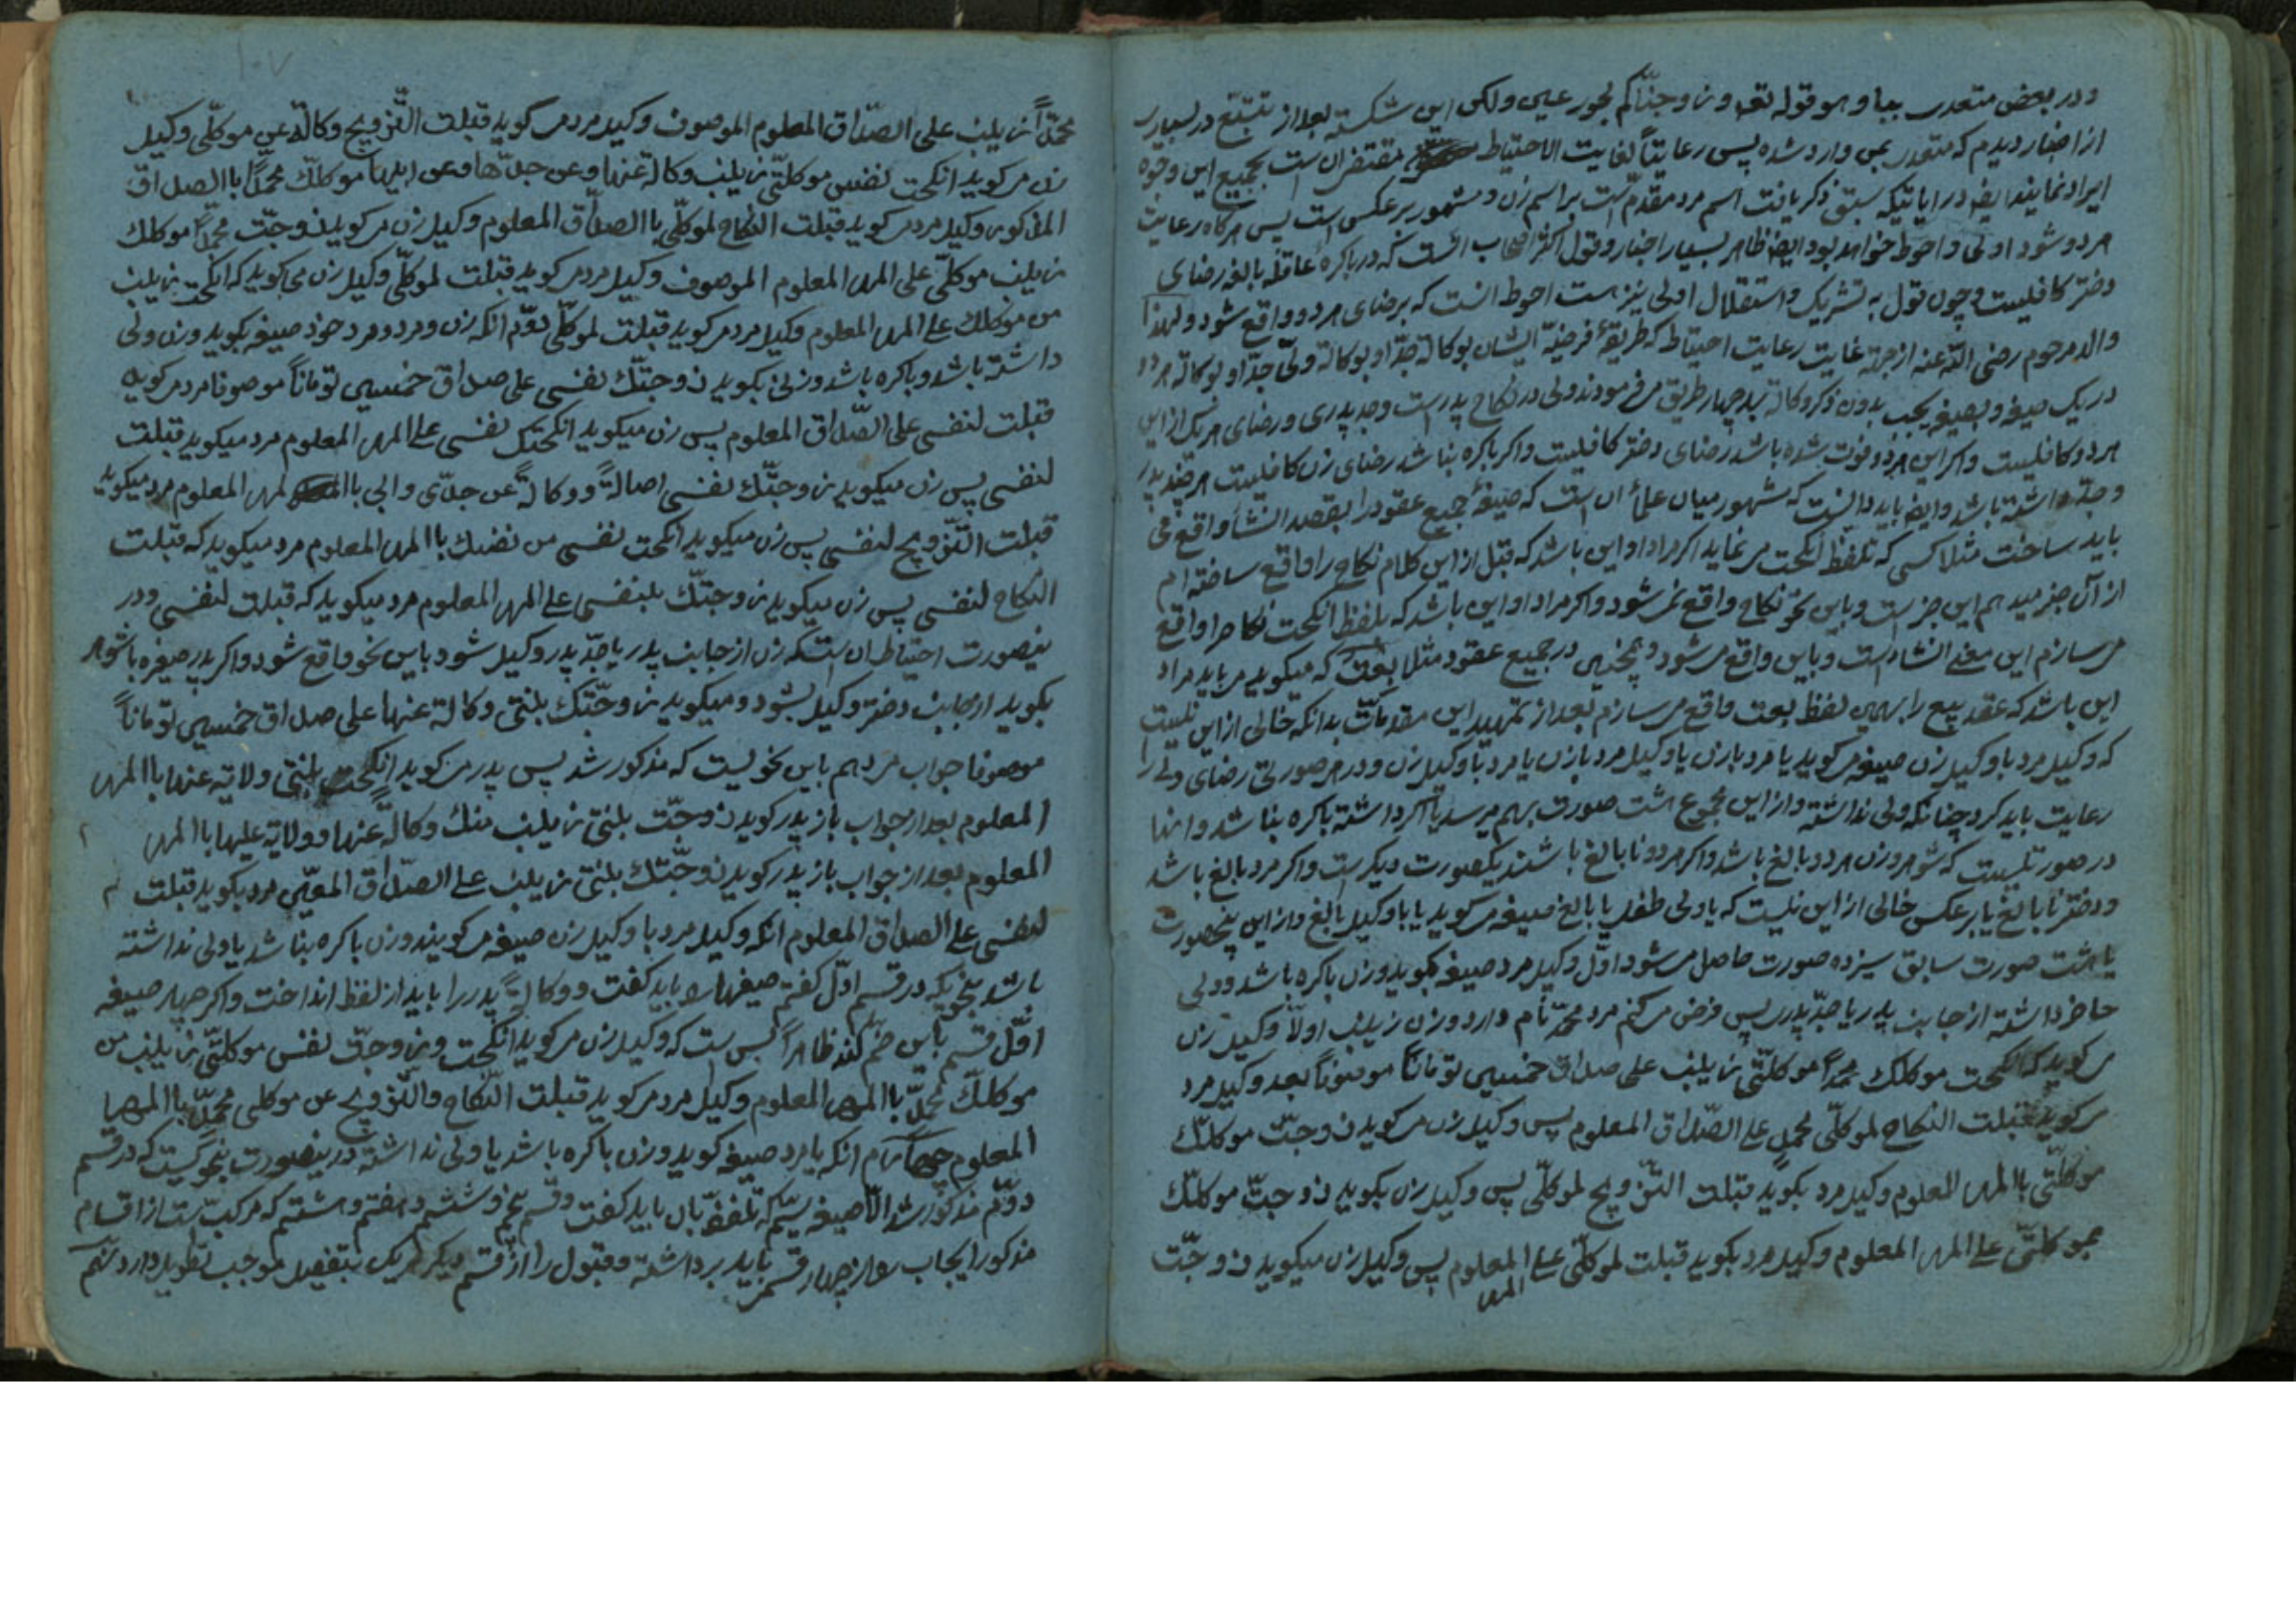 ودر بعض متعدی ببا و هو قوله تعه و زوجناکم بحور عین ولکن این شکسته بعد از تتبّع در بسیاری
از اخبار دیدم که متعدی بمن وارد شده پس رعایتاً لغایت الاحتیاط مقتضی ان است بجمیع این وجوه
ایراد نمایند ایضه در ایاتیکه سبق ذکر یافت اسم مرد مقدّم است بر اسم زن و مشهور بر عکس است پس هرگاه رعایت
هر دو شود اولی و احوط خواهد بود ایضه ظاهر بسیار اخبار و قول اکثر اصحاب انست که در باکرهٔ عاقله بالغه رضای
دختر کافیست و چون قول به تشریک و استقلال اولی نیز هست احوط انست که برضای هر دو واقع شود و لهذا
والد مرحوم رضی اللّه عنه از جهة غایت رعایت احتیاط که طریقهٔ مرضیّه ایشان بوکالة جدّ او بوکالة ولیّ جدّ او بوکالة هر دو
در یک صیغه و بصیغه یجب بدون ذکر وکالة بچهار طریق می فرمودند ولی در نکاح پدر است وجد پدری و رضای هر یک از این
هر دو کافیست و اکر این هر دو فوت شده باشد رضای دختر کافیست و اکر باکره نباشد رضای زن کافیست هر چند پدر
وجدّ داشته باشد و ایضه باید دانست که مشهور میان علماء ان است که صیغهٔ جمیع عقود را بقصد انشاء واقع می
باید ساخت مثلا کسی که تلفظ انکحت می نماید اکر مراد او این باشد که قبل از این کلام نکاح را واقع ساخته ام
از آن خبر میدهم این خبر است و باین نحو نکاح واقع نمی شود و اکر مراد او این باشد که بلفظ انکحت نکاح را واقع
می سازم این معنی انشاء است و باین واقع می شود و همچنین در جمیع عقود مثلا بعت که میکوید می باید مراد
این باشد که عقد بیع را بهمین لفظ بعت واقع می سازم بعد از تمهید این مقدمات بدانکه خالی از این نیست
که وکیل مرد با وکیل زن صیغه می کوید یا مرد با زن یا وکیل مرد با زن یا مرد با وکیل زن و در هر صورتی رضای ولی را
رعایت باید کرد چنانکه ولی نداشته و از این مجموع هشت صورت بهم میرسد یا اکر داشته باکره نباشد و اینها
در صورتیست که شوهر و زن هر دو بالغ باشد و اکر هر دو نابالغ باشند یکصورت دیکر است و اکر مرد بالغ باشد
و دختر نابالغ یا بر عکس خالی از این نیست که یا ولی طفل یا بالغ صیغه می کوید یا با وکیل بالغ و از این پنجصورت
با هشت صورت سابق سیزده صورت حاصل می شود اوّل وکیل مرد صیغه بکوید و زن باکره باشد و ولی
حاضر داشته از جانب پدر یا جدّ پدری پس فرض می کنم مرد محمّد نام دارد و زن زینب اولاً وکیل زن
می کوید که انکحت موکلک محمداً موکلتّی زینب علی صداق خمسین توماناً موصوفاً بعد وکیل مرد
می کوید قبلت النکاح لموکلّی محمدٍ علی الصّداق المعلوم پس وکیل زن می کوید زوجتّ موکلّک
موکلّتی باالمهر المعلوم وکیل مرد بکوید قبلت التّزویج لموکلّی پس وکیل زن بکوید زوجتّ موکلّک
بموکلتّی علی المهر المعلوم وکیل مرد بکوید قبلت لموکلّی علی المهر المعلوم پس وکیل زن میکوید زوجّت
۱۰۷
محمّداً زینب علی الصّداق المعلوم الموصوف وکیل مرد می گوید قبلت التّزویج وکالةً عن موکلّی وکیل
زن می کوید انکحت نفس موکلتّی زینب وکالة عنها وعن جدّها وعن ابیها موکلّک محمداً باالصداق
المذکور وکیل مرد می کوید قبلت النکاح لموکلّی باالصداق المعلوم وکیل زن می کوید زوجّت محمّداً موکلک
زینب موکلتّی علی المهر المعلوم الموصوف وکیل مرد می کوید قبلت لموکلّی وکیل زن می کوید که انکحت زینب
من موکلک علی المهر المعلوم وکیل مرد می کوید قبلت لموکلّی دوّم انکه زن و مرد و مرد خود صیغه بکوید و زن ولی
داشته باشد و باکره باشد و زن بکوید زوجتّک نفسی علی صداق خمسین توماناً موصوفا مرد می کوید
قبلت لنفسی علی الصّداق المعلوم پس زن میکوید انکحتک نفسی علی المهر المعلوم مرد میکوید قبلت
لنفسی پس زن میکوید زوجتّک نفسی اصالةً ووکالةً عن جدّی وابی باالمهر المعلوم مرد میکوید
قبلت التّزویج لنفسی پس زن میکوید انکحت نفسی من نفسک باالمهر المعلوم مرد میکوید که قبلت
النکاح لنفسی پس زن میکوید زوجتّک بنفسی علی المهر المعلوم مرد میکوید که قبلت لنفسی ودر
ینصورت احتیاط ان است که زن از جانب پدر یا جدّ پدر وکیل شود باین نحو واقع شود و اکر پدر صیغه با شوهر
بکوید از جانب دختر وکیل بشود و میکوید زوجّتک بنتی وکالة عنها علی صداق خمسین توماناً
موصوفا جواب مرد هم باین نحویست که مذکور شد پس پدر می کوید انکحت بنتی ولایة عنها باالمهر
المعلوم بعد از جواب باز پدر کوید زوجّت بنتی زینب منک وکالةً عنها وولایة علیها باالمهر
المعلوم بعد از جواب باز پدر کوید زوجّتک بنتی زینب علی الصّداق المعیّن مرد بکوید قبلت
لنفسی علی الصداق المعلوم انکه وکیل مرد با وکیل زن صیغه می کویند و زن باکره نباشد یا ولی نداشته
باشد بنحویکه در قسم اوّل کفتم صیغها را باید کفت و وکالةً پدر را باید از لفظ انداخت و اکر چهار صیغه
اوّل قسم باین ضم کند ظاهراً بس است که وکیل زن می کوید انکحت وزوجّت نفس موکلتّی زینب من
موکلک محمّد باالمهر المعلوم وکیل مرد می کوید قبلت النّکاح والتّزویج عن موکلی محمّد باالمهر
المعلوم چهارم انکه یا مرد صیغه کوید و زن باکره باشد یا ولی نداشته در ینصورت بنحویست که در قسم
دوّم مذکور شد الّا صیغه سیّم که تلفظ بان باید کفت وقسم پنجم و ششم و هفتم و هشتم که مرکب است از اقسام
مذکور ایجاب را از چهار قسم باید برداشته وقبول را از قسم دیکر لیک بتفصیل موجب تطویل دارد نهم